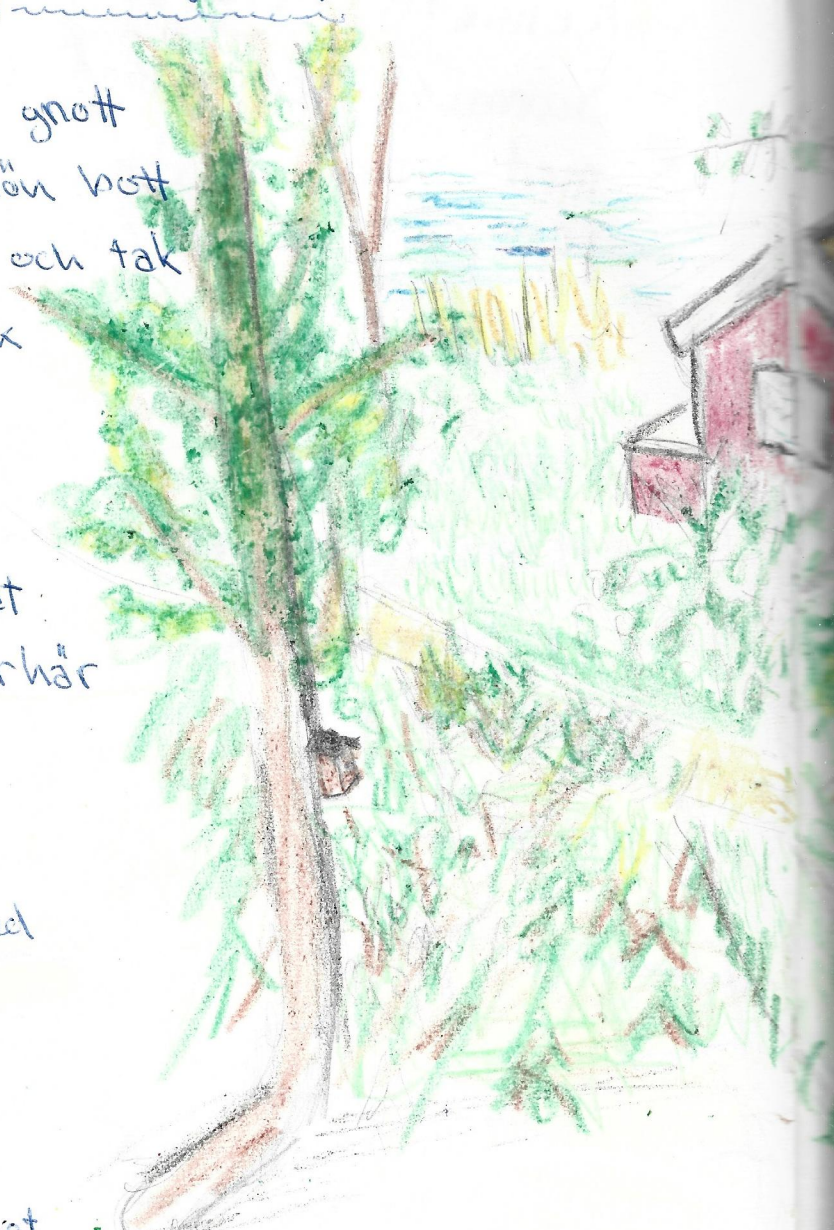 gnott
ön bott
och tak
x
et
rhär
d
et